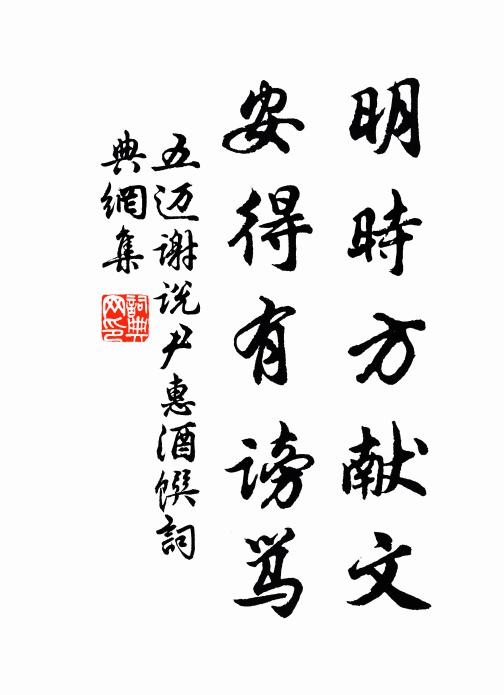 明時方献文
安得有谤骂
五迈谢说尹惠酒馔詞
典網集
詞典网印